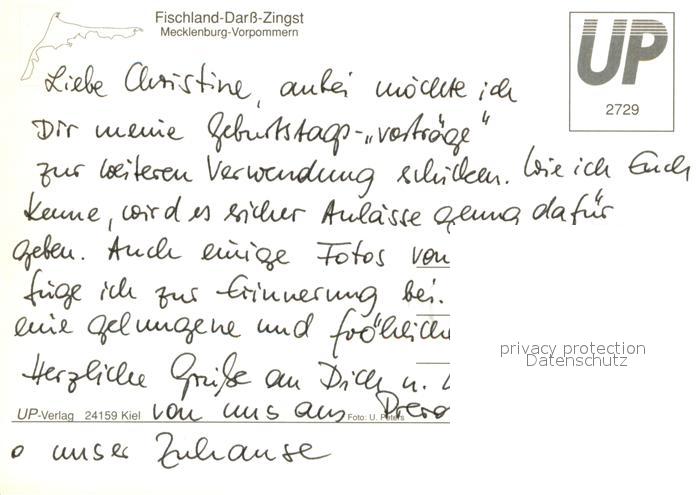 Fischland-Darß-Zingst
Mecklenburg-Vorpommern
UP
2729
Liebe Christine, anbei möchte ich
Dir meine Geburtstags-„vorträge“
zur weiteren Verwendung schicken. Wie ich Euch
kenne, wird es sicher Anlässe genug dafür
geben. Auch einige Fotos von
füge ich zur Erinnerung bei.
eine gelungene und fröhliche
privacy protection
Datenschutz
Herzliche Grüße an Dich u.
UP-Verlag 24159 Kiel von uns aus Foto: U. Peters
unser Zuhause